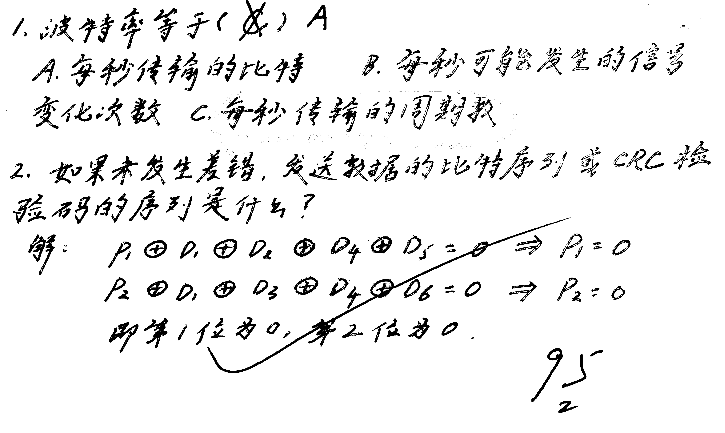 1. 波特率等于( ) A
A. 每秒传输的比特 B. 每秒可能发生的信号
变化次数 C. 每秒传输的周期数
2. 如果未发生差错,发送数据的比特序列或CRC检
验码的序列是什么?
解: P₁⊕D₁⊕D₂⊕D₄⊕D₅=0 ⇒ P₁=0
P₂⊕D₁⊕D₃⊕D₄⊕D₆=0 ⇒ P₂=0
即第1位为0,第2位为0.
95
2